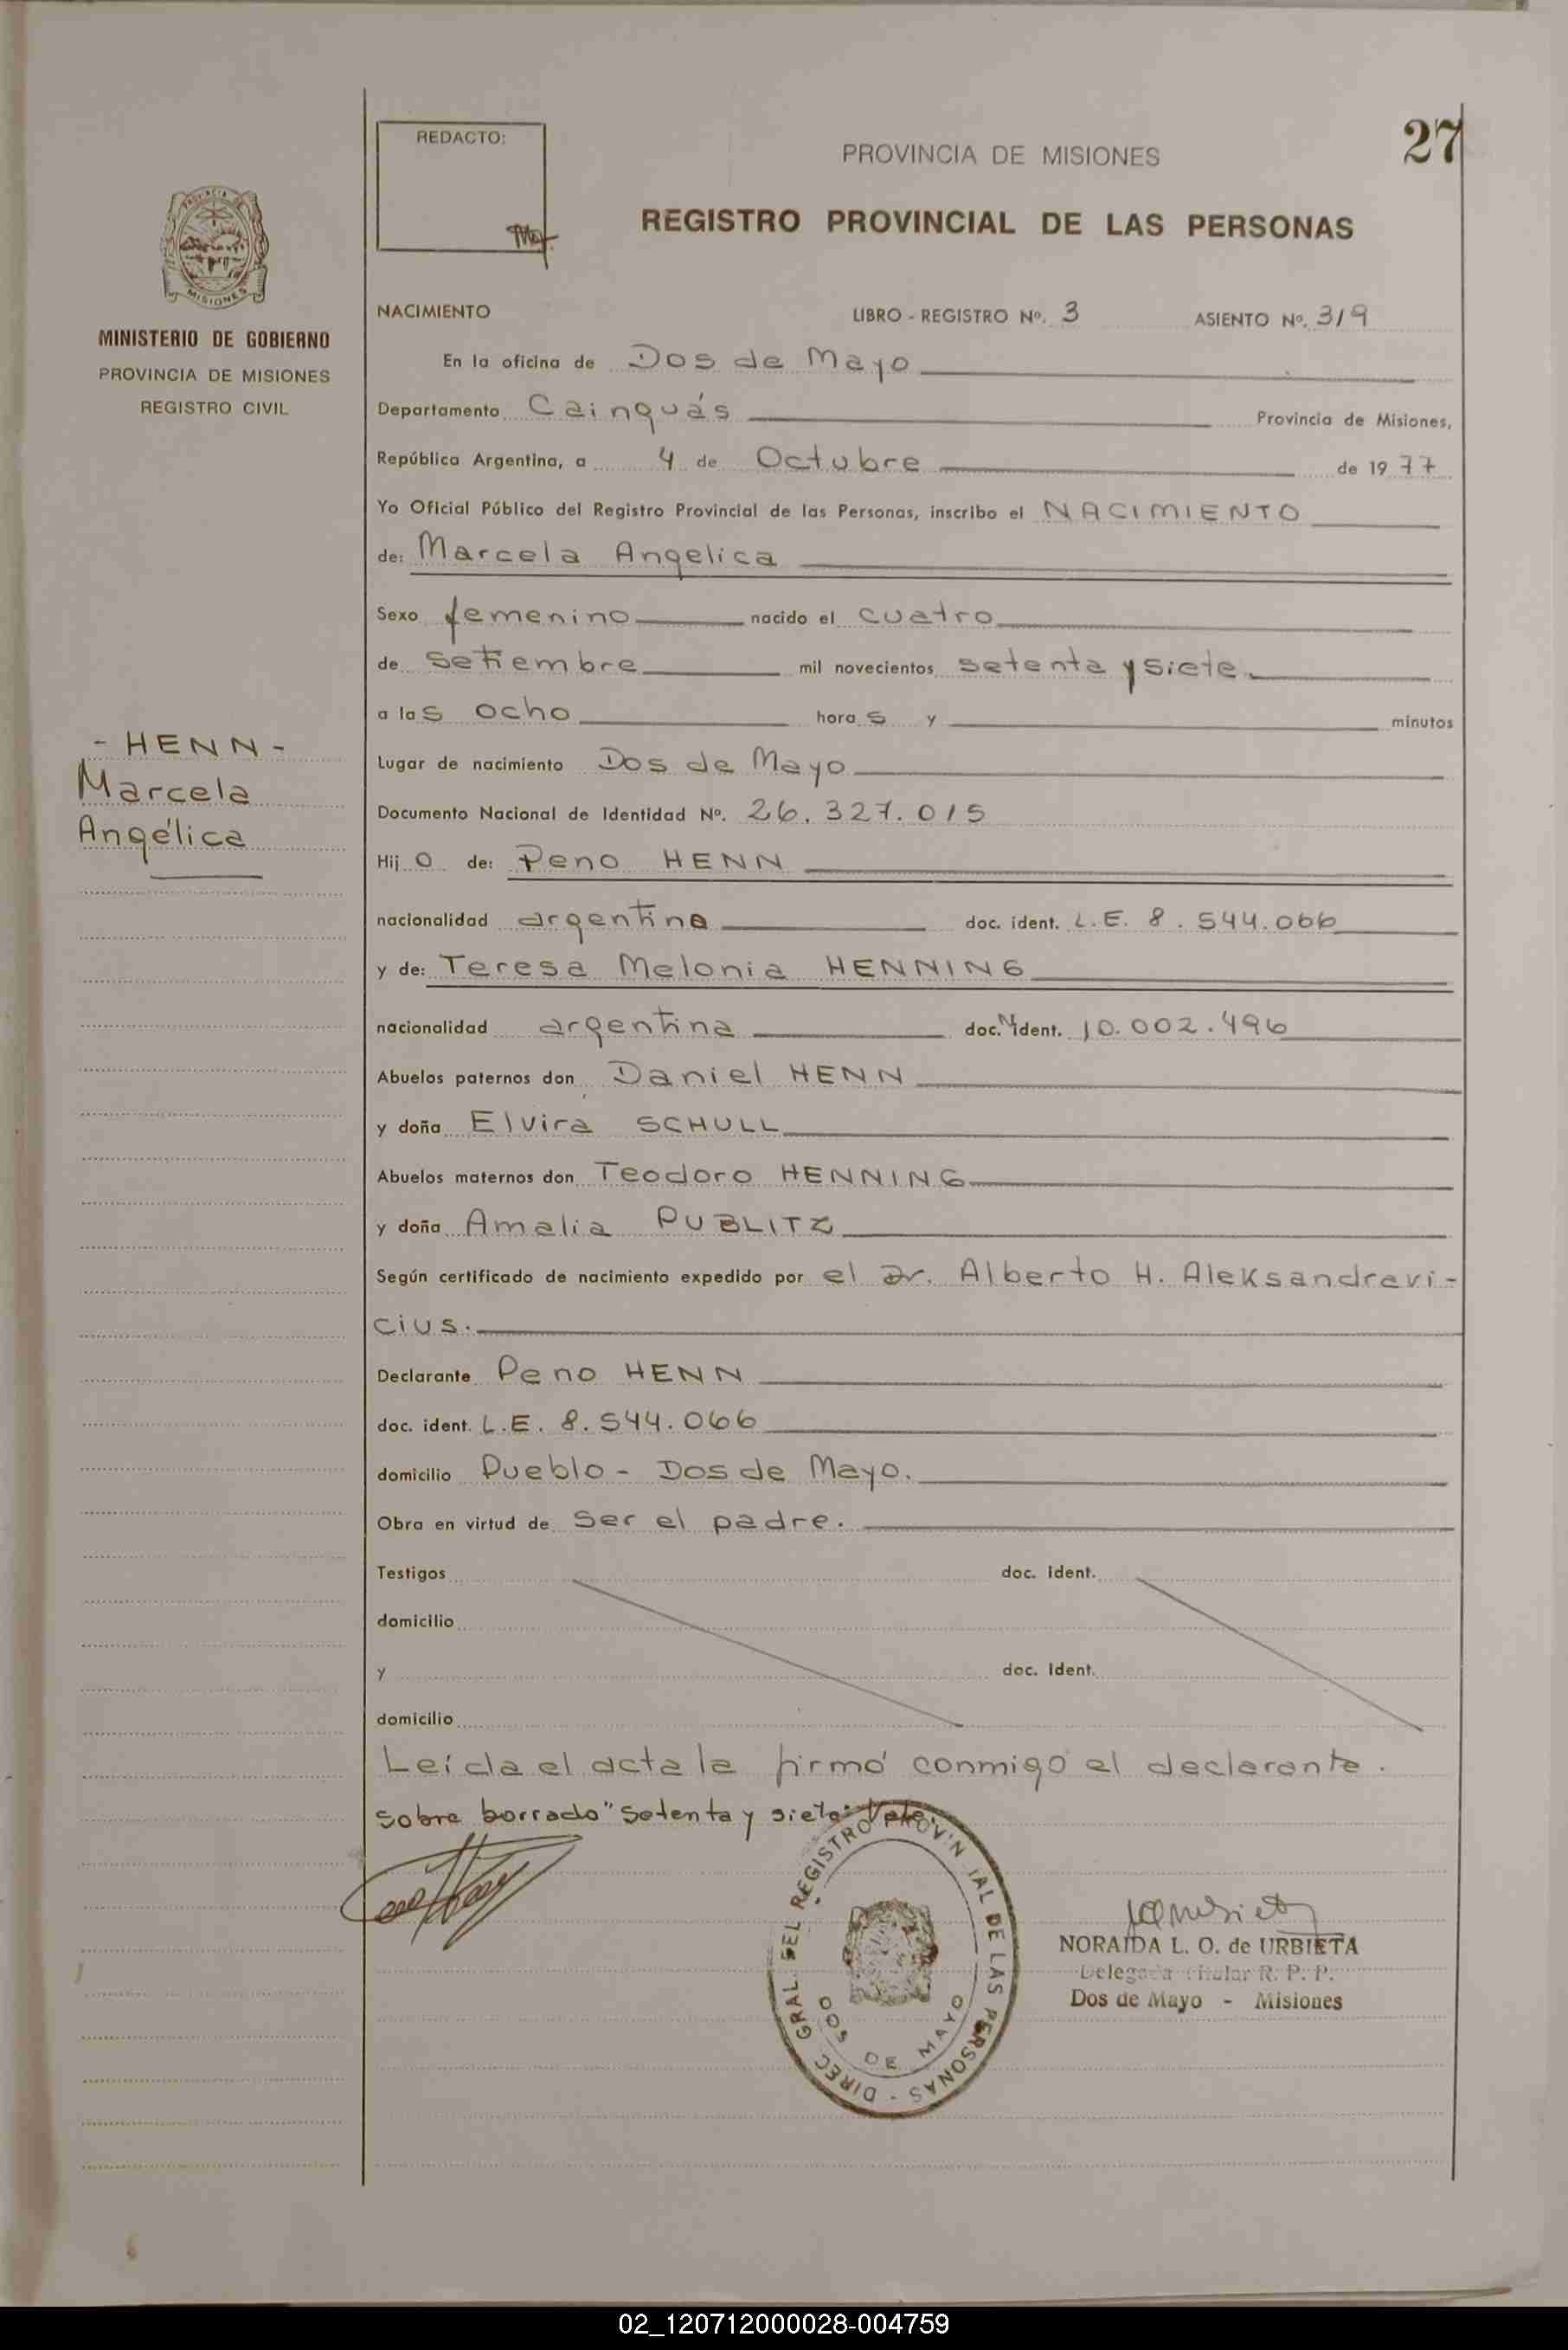 27
REDACTO:
PROVINCIA DE MISIONES
REGISTRO PROVINCIAL DE LAS PERSONAS
PROVINCIA DE
MISIONES
MINISTERIO DE GOBIERNO
PROVINCIA DE MISIONES
REGISTRO CIVIL
- HENN -
Marcela
Angélica
NACIMIENTO LIBRO - REGISTRO Nº. 3 ASIENTO Nº. 319
En la oficina de Dos de Mayo
Departamento Cainguás Provincia de Misiones,
República Argentina, a 4 de Octubre de 1977
Yo Oficial Público del Registro Provincial de las Personas, inscribo el NACIMIENTO
de: Marcela Angelica
Sexo femenino nacido el cuatro
de setiembre mil novecientos setenta y siete.
a las ocho horas y minutos
Lugar de nacimiento Dos de Mayo
Documento Nacional de Identidad Nº. 26.327.015
Hijo de: Peno HENN
nacionalidad argentina doc. ident. L.E. 8.544.066
y de: Teresa Melonia HENNING
nacionalidad argentina doc. ident. 10.002.496
Abuelos paternos don Daniel HENN
y doña Elvira SCHULL
Abuelos maternos don Teodoro HENNING
y doña Amalia PUBLITZ
Según certificado de nacimiento expedido por el Dr. Alberto H. Aleksandravi-
cius.
Declarante Peno HENN
doc. ident. L.E. 8.544.066
domicilio Pueblo - Dos de Mayo.
Obra en virtud de ser el padre.
Testigos doc. ident.
domicilio
y doc. ident.
domicilio
Leída el acta la firmó conmigo el declarante.
Sobre borrado "setenta y siete" Vale.
DIREC GRAL. DEL REGISTRO PROVIN IAL DE LAS PERSONAS -
DOS DE MAYO
NORAIDA L. O. de URBIETA
Delegada Titular R. P. P.
Dos de Mayo - Misiones
02_120712000028-004759